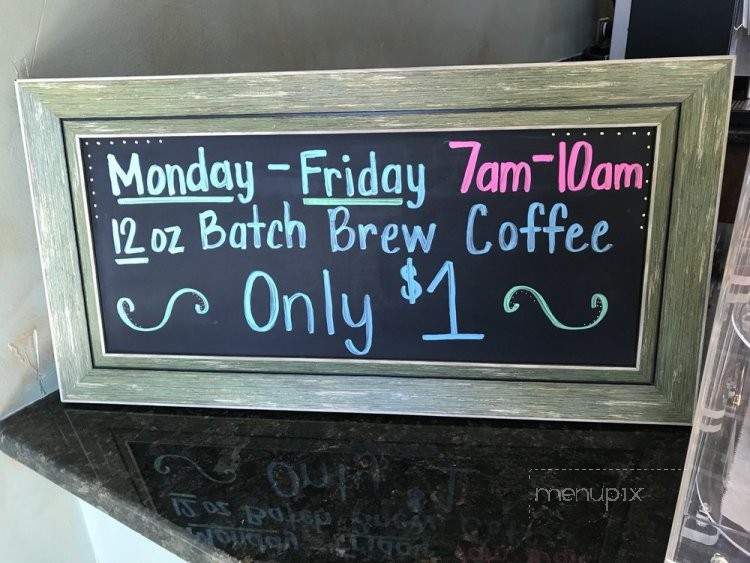 Monday - Friday 7am-10am
12 oz Batch Brew Coffee
Only $1
menupix